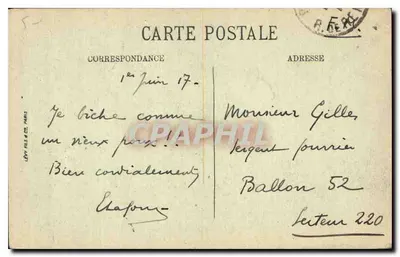 CARTE POSTALE
CORRESPONDANCE
ADRESSE
1er Juin 17-
Je biche comme
un vieux poux!!
Bien cordialement
Monsieur Gilles
Sergent fourrier
Ballon 52
Secteur 220
LÉVY FILS & Cie, PARIS
CPARHIF